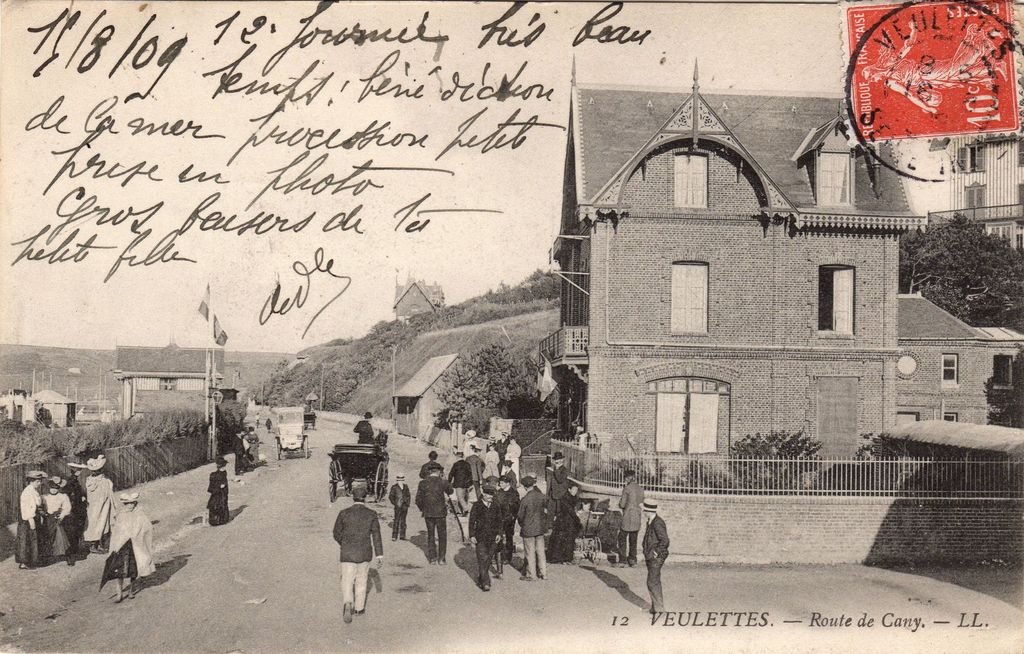 15/8/09 12e journée très beau
temps, bénédiction
de la mer procession petite
prise en photo
Gros baisers de ta
petite fille
VEULETTES
RÉPUBLIQUE FRANÇAISE
POSTES
10c
12 VEULETTES. — Route de Cany. — LL.